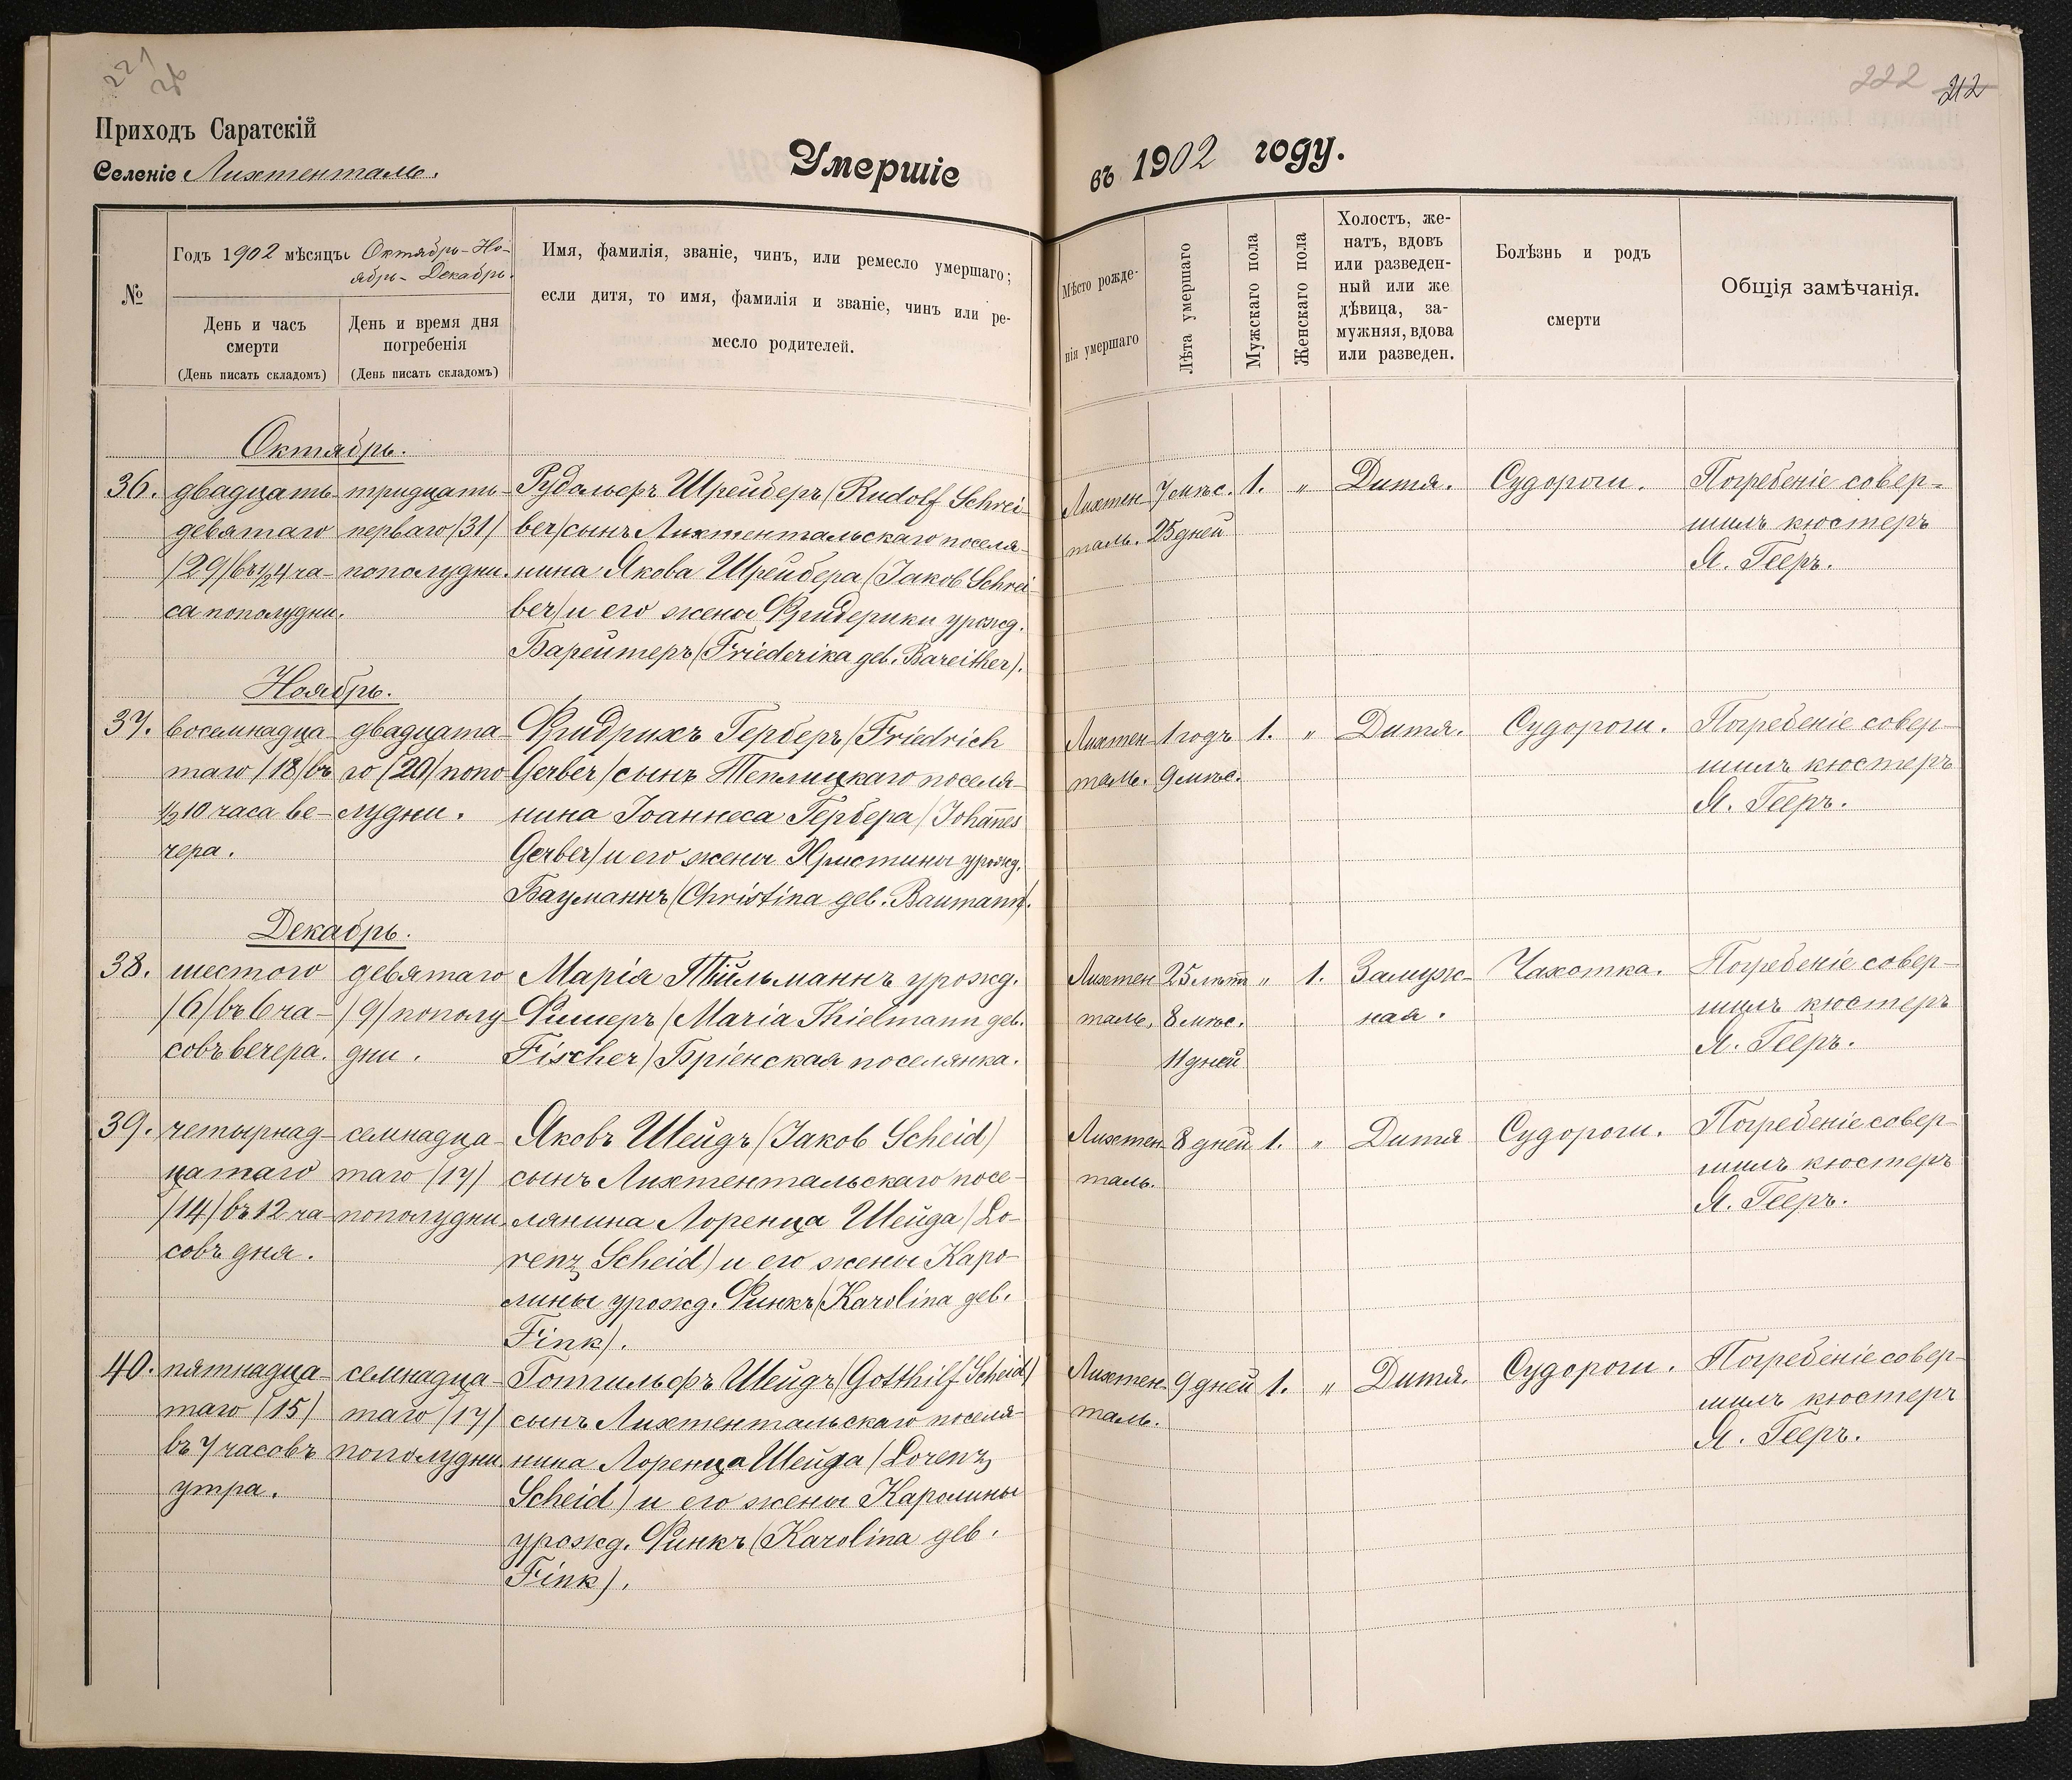 221
26
222 212
Приходъ Саратскій
Селеніе Лихтенталь.
Умершіе
въ 1902 году.
№
Годъ 1902 мѣсяцъ Октябрь-Но-
ябрь-Декабрь.
День и часъ
смерти
(День писать складомъ)
День и время дня
погребенія
(День писать складомъ)
Имя, фамилія, званіе, чинъ, или ремесло умершаго;
если дитя, то имя, фамилія и званіе, чинъ или ре-
месло родителей.
Мѣсто рожде-
нія умершаго
Лѣта умершаго
Мужскаго пола
Женскаго пола
Холостъ, же-
натъ, вдовъ
или разведен-
ный или же
дѣвица, за-
мужняя, вдова
или разведен.
Болѣзнь и родъ
смерти
Общія замѣчанія.
Октябрь.
36.
двадцать
девятаго
/29/ въ ½4 ча-
са пополудни.
тридцать
перваго /31/
пополудни.
Рудольфъ Шрейберъ (Rudolf Schrei-
ber) сынъ Лихтентальскаго поселя-
нина Якова Шрейбера (Jakob Schrei-
ber) и его жены Фридерики урожд.
Барейтеръ (Friederika geb. Bareither).
Лихтен-
таль.
7 мѣс.
25 дней
1.
"
Дитя.
Судороги.
Погребеніе совер-
шилъ кюстеръ
Я. Гееръ.
Ноябрь.
37.
восемнадца-
таго /18/ въ
½10 часа ве-
чера.
двадцата-
го /20/ попо-
лудни.
Фридрихъ Герберъ (Friedrich
Gerber) сынъ Теплицкаго поселя-
нина Іоаннеса Гербера (Johañes
Gerber) и его жены Христины урожд.
Бауманнъ (Christina geb. Baumann).
Лихтен-
таль.
1 годъ
9 мѣс.
1.
"
Дитя.
Судороги.
Погребеніе совер-
шилъ кюстеръ
Я. Гееръ.
Декабрь.
38.
шестого
/6/ въ 6 ча-
совъ вечера.
девятаго
/9/ пополу-
дни.
Марія Тильманнъ урожд.
Фишеръ (Maria Thielmann geb.
Fischer) Бріенская поселянка.
Лихтен
таль.
25 лѣтъ
8 мѣс.
11 дней
"
1.
Замуж-
ная.
Чахотка.
Погребеніе совер-
шилъ кюстеръ
Я. Гееръ.
39.
четырнад-
цатаго
/14/ въ 12 ча-
совъ дня.
семнадца-
таго /17/
пополудни.
Яковъ Шейдъ (Jakob Scheid)
сынъ Лихтентальскаго посе-
лянина Лоренца Шейда (Lo-
renz Scheid) и его жены Каро-
лины урожд. Финкъ (Karolina geb.
Fink).
Лихтен-
таль.
8 дней
1.
"
Дитя
Судороги.
Погребеніе совер-
шилъ кюстеръ
Я. Гееръ.
40.
пятнадца-
таго /15/
въ 7 часовъ
утра.
семнадца-
таго /17/
пополудни.
Готтильфъ Шейдъ (Gotthilf Scheid)
сынъ Лихтентальскаго поселя-
нина Лоренца Шейда (Lorenz
Scheid) и его жены Каролины
урожд. Финкъ (Karolina geb.
Fink).
Лихтен-
таль.
9 дней
1.
"
Дитя.
Судороги.
Погребеніе совер-
шилъ кюстеръ
Я. Гееръ.